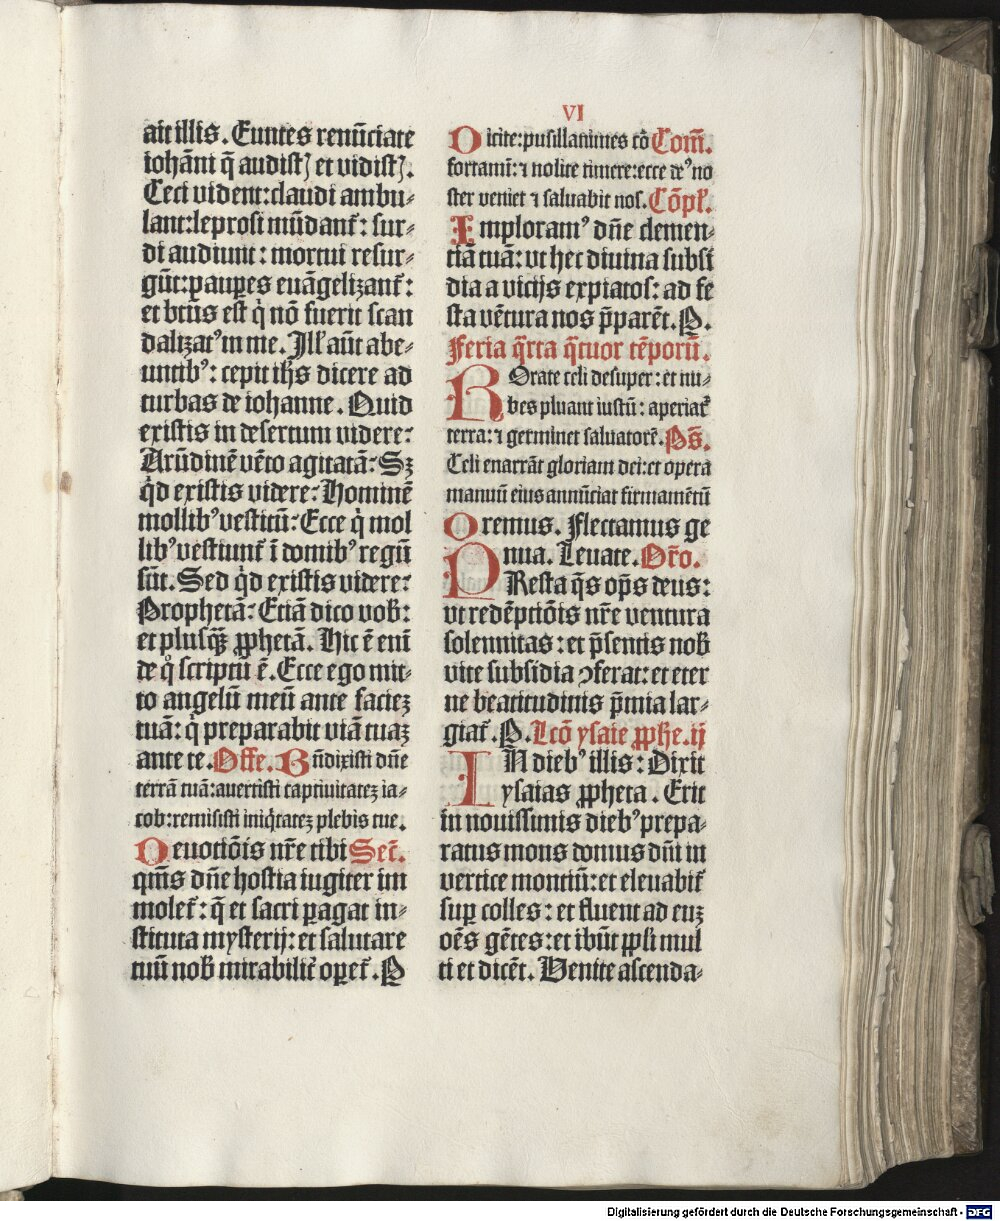 VI
ait illis. Euntes renūciate
iohāni q̄ audistꝭ et vidistꝭ.
Ceci vident: claudi ambu⸗
lant: leprosi mūdant᷑: sur⸗
di audiunt: mortui resur⸗
gūt: pauꝑes euāgelizant᷑:
et btūs est q̇ nō fuerit scan
dalizatꝰ in me. Ill' aūt abe⸗
untibꝰ: cepit ihs̄ dicere ad
turbas de iohanne. Quid
existis in desertum videre:
Arūdinē vēto agitatā: Sꝫ
qd̓ existis videre: Hominē
mollibꝰ vestitū: Ecce q̇ mol
libꝰ vestiunt᷑ ī domibꝰ regū
sūt. Sed qd̓ existis videre:
Prophetā: Etiā dico vob̄:
et plusqꝫ̄ ꝓphetā. Hic ē eni
de qͦ scriptū ē. Ecce ego mit⸗
to angelū meū ante facieꝫ
tuā: q̇ preparabit viā tuaꝫ
ante te. Offe. Bn̄dixisti dn̄e
terrā tuā: auertisti captiuitateꝫ ia⸗
cob: remisisti iniq̇tateꝫ plebis tue.
Deuotiōis nr̄e tibi Secr̄.
qm̄s dn̄e hostia iugiter im
molet᷑: q̄ et sacri ꝑagat in⸗
stituta mysterij: et salutare
tuū nob̄ mirabilit᷑ oꝑet᷑. P
Dicite: pusillanimes cō Com̄.
fortami: ⁊ nolite timere: ecce deꝰ no
ster veniet ⁊ saluabit nos. Cōpl'.
Imploramꝰ dn̄e clemen⸗
tiā tuā: vt hec diuina subsi
dia a vicijs expiatos: ad fe
sta vētura nos p̄parēt. P.
Feria q̄rta q̄tuor tēporū.
Rorate celi desuper: et nu⸗
bes pluant iustū: aperiat᷑
terra: ⁊ germinet saluatorē. Ps̄.
Celi enarrāt gloriam dei: et opera
manuū eius annūciat firmamētū
Oremus. Flectamus ge
nua. Leuate. Or̄o.
PResta q̄s op̄s deus:
vt redēptiōis nr̄e ventura
solennitas: et p̄sentis nob̄
vite subsidia ꝯferat: et eter
ne beatitudinis p̄mia lar⸗
giat᷑. P. Lcō ysaie ꝓphe. ij
IN diebꝰ illis: Dixit
ysaias ꝓpheta. Erit
in nouissimis diebꝰ prepa⸗
ratus mons domus dn̄i in
vertice montiū: et eleuabit᷑
suꝑ colles: et fluent ad euꝫ
oēs gētes: et ibūt ppli mul
ti et dicēt. Venite ascenda⸗
Digitalisierung gefördert durch die Deutsche Forschungsgemeinschaft - DFG